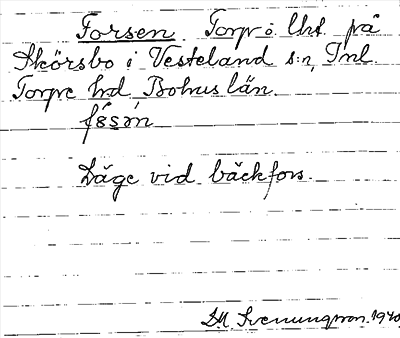 Forsen Torp o. lht på
Skörsbo i Vesteland s:n, Inl.
Torpe hd Bohus län.
Läge vid bäckfors.
Svenungsson. 1940